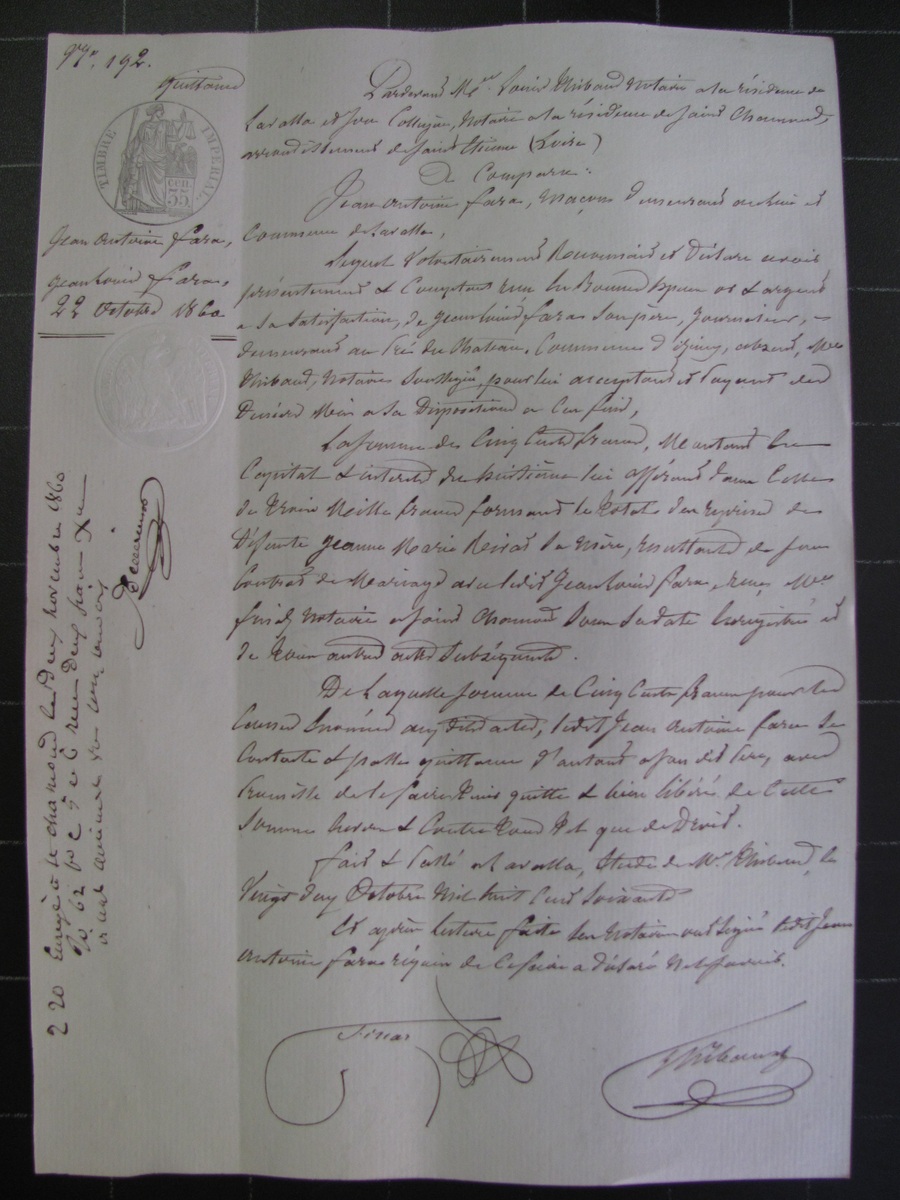 N°. 192.
Quittance
TIMBRE IMPERIAL
CEN. 35
Jean Antoine fara,
Jean Louis fara,
22 Octobre 1860
Pardevant Me Louis Thibaud Notaire à la résidence de
Lavalla et son Collègue, Notaire à la résidence de Saint Chamond,
arrondissement de Saint Etienne (Loire)
A Comparu:
Jean Antoine fara, maçon, demeurant
Commune de Lavalla,
Lequel Volontairement Reconnait et Déclare avoir
présentement & Comptant reçu en Bonnes Espèces or & argent
a sa satisfaction, de Jean Louis fara Son père, Journalier,
demeurant au Pré du Chateau, Commune d'Izieux, absent, Me
Thibaud, Notaire Soussigné, pour lui acceptant et Payant des
Deniers Mis a sa Disposition a Ces fins,
La somme de Cinq Cents francs, Montant En
Capital & intérêts du huitième lui afférant dans Celle
de Trois Mille francs formant le total des reprises de
Défunte Jeanne Marie Sa Mère, résultante de son
Contrat de Mariage avec ledit Jean Louis fara, reçu Me
finaz Notaire a Saint Chamond Sous Sa date Enregistré et
de tous autres actes Subséquents.
De Laquelle Somme de Cinq Cents francs pour les
Causes Enoncées aux dits actes, ledit Jean Antoine fara Se
Contente & passe quittance d'autant a son dit Père, avec
Promesse de le faire tenir quitte & bien libéré de Cette
Somme Envers & Contre tous tel que de Droit.
fait & Passé a Lavalla, Etude de Me Thibaud, le
Vingt deux Octobre Mil huit Cent Soixante
Et après lecture faite les Notaires ont Signé ledit Jean
Antoine fara requis de Ce faire a déclaré Ne Savoir.
finaz
Thibaud
220 Enregé à St chamond le deux novembre 1860
fo 62 vo c 5 et 6 reçu deux francs